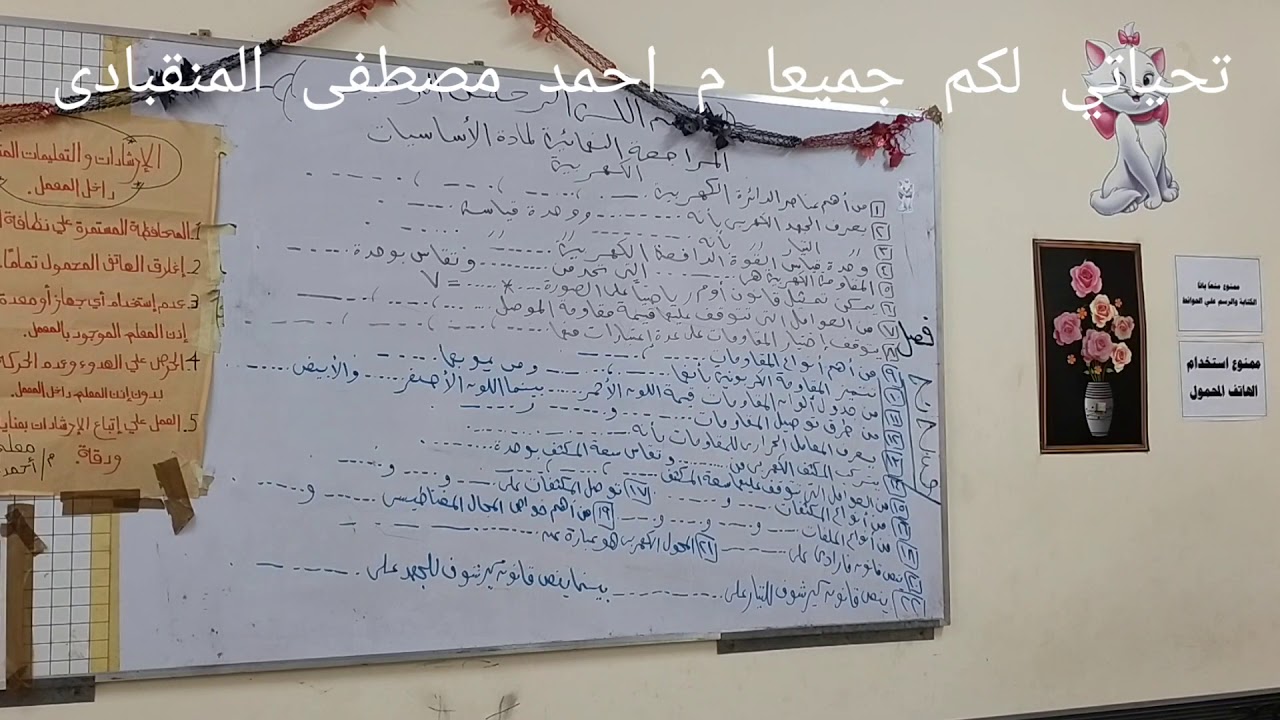 تحياتي لكم جميعا م احمد مصطفى المنقبادى
المراجعة النهائية لمادة الأساسيات
الكهربية
1 من أهم عناصر الدائرة الكهربية
2 يعرف الجهد الكهربى بأنه ووحدة قياسه
3 التيار " بأنه " "
4 وحدة قياس القوة الدافعة الكهربية
5 المقاومة الكهربية هى التى تحد من وتقاس بوحدة
6 يمكن تمثيل قانون أوم رياضياً على الصورة V =
7 من العوامل التى تتوقف عليها قيمة مقاومة الموصل
8 يتوقف إختيار المقاومات على عدة إعتبارات منها
فصل
9 من أهم أنواع المقاومات
تتميز المقاومة الكربونية بأنها ومن عيوبها
من جدول ألوان المقاومات قيمة اللون الأحمر بينما اللون الأصفر والأبيض
من طرق توصيل المقاومات و
يعرف المعامل الحرارى للمقاومات بأنه
يتركب المكثف الكهربى من وتقاس سعة المكثف بوحدة
15 من العوامل التى يتوقف عليها سعة المكثف
من أنواع المكثفات و 17 توصل المكثفات على و و
من أنواع الملفات و و و 19 من أهم خواص المجال المغناطيسى و
ينص قانون فاراداى على 21 المحول الكهربى هو عبارة عن
22 ينص قانون كيرشوف للتيار على بينما ينص قانون كيرشوف للجهد على
الإرشادات والتعليمات
داخل المعمل.
1 المحافظة المستمرة على نظافة
2. إغلاق الهاتف المحمول تماماً
3 عدم إستخدام أي جهاز أو معدة
إذن المعلم الموجود بالمعمل.
4 الحرص علي الهدوء وعدم الحركة
بدون إذن المعلم داخل المعمل
5 العمل علي إتباع الإرشادات
ودقة.
م/ أحمد
ممنوع منعا باتا
الكتابة والرسم علي الحوائط
ممنوع استخدام
الهاتف المحمول